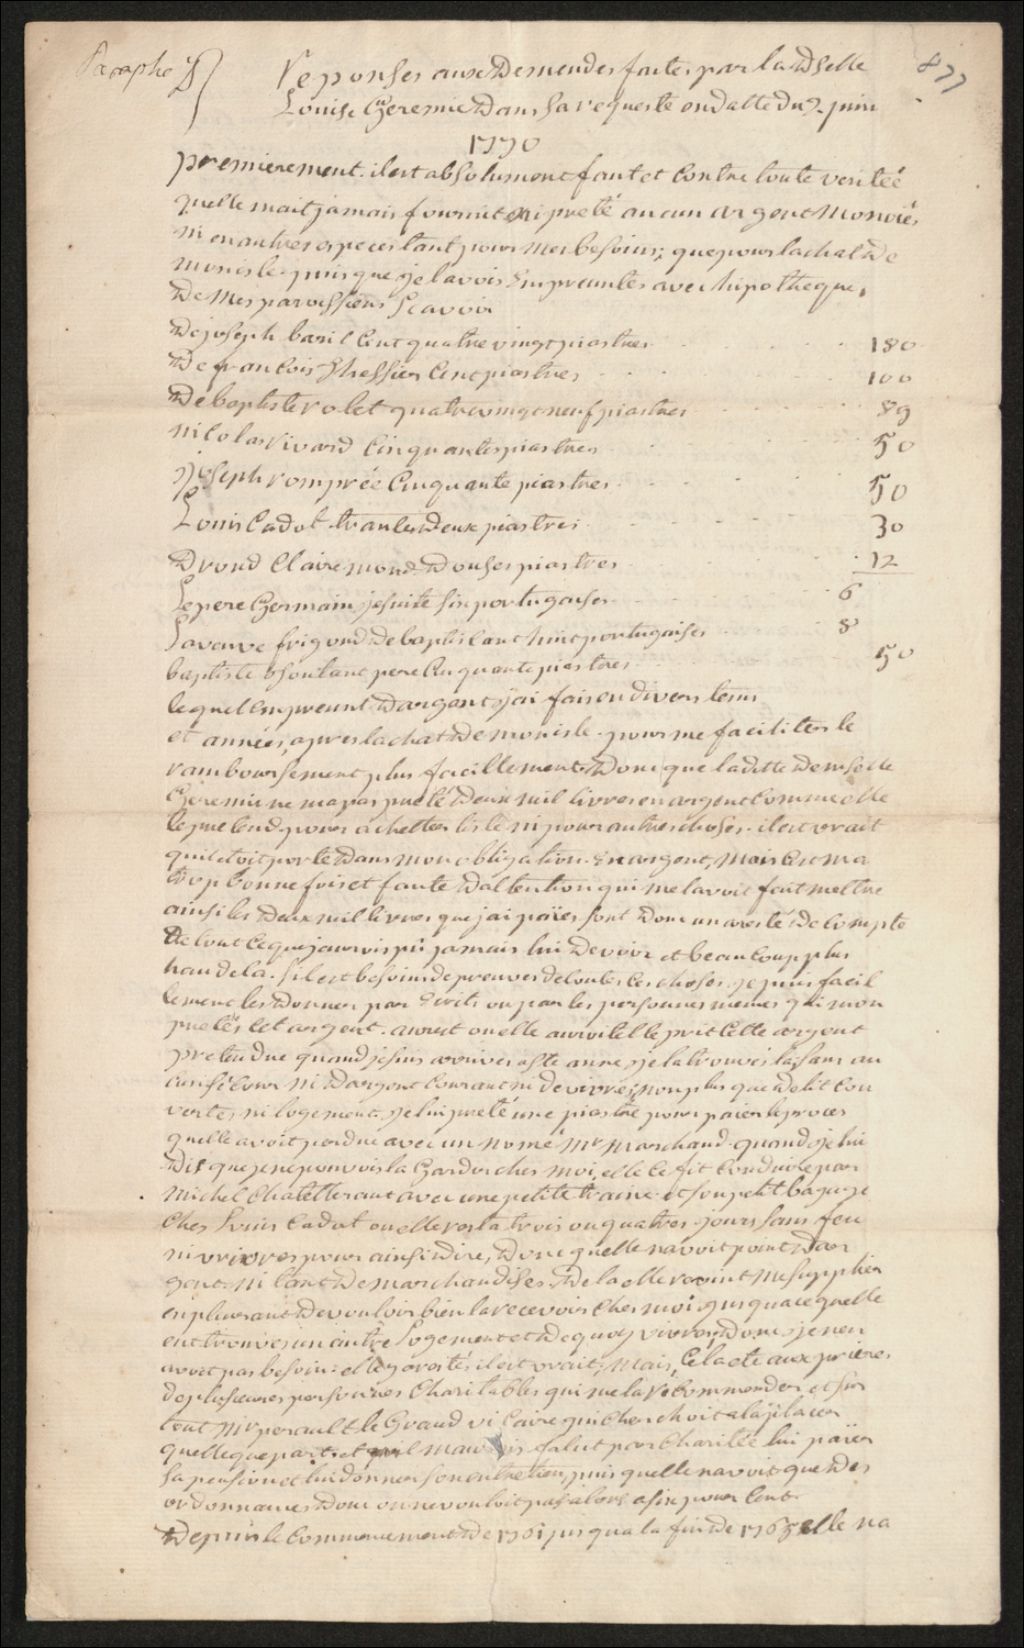 Paraphe
877
Reponses aux Demendes faites par la Dselle
Louise Geremie Dans Sa requeste en datte du 2 juin
1770
premierement. il est absolument faut et Contre toute veritéé
quelle mait jamais fournit ni preté aucun argent Monoiés
ni en autres especes tant pour mes besoins; que pour lachat De
mon isle. puis que je lavois Empreuntés avec hipotheque,
De Mes paroissiens Scavoir
De joseph baril Cent quatre vingt piastres 180
De francois Chessier Cent piastres 100
De baptiste rolet quatre vingt neuf piastres 89
nicolas rivard Cinquantes piastres 50
joseph romprée Cinquante piastres 50
Louis Cadot trantes Deux piastres 30
Drond Clairemond Douses piastres 12
Le pere Germain jesuite six portugaises 6
La veuve frigond De baptiscant huit portugaises 8
baptiste pere Cinquante piastres 50
lequel empreunt Dargent jai fais en divers tems
et années, apres lachat De mon isle. pour me faciliter le
ramboursement plus facillement. Donc que laditte Demselle
Geremie ne ma pas preté Deux mil livres en argent Comme elle
le pretend. pour achetter lisle ni pour autres choses. il est vrait
quil etoit porté Dans mon obligation. En argent, Mais Cest ma
trop bonne fois et faute Dattention qui me lavoit fait mettre
ainsi les Deux mil livres que jai païes sont Donc un aresté De Compte
De tout Ce que jaurois pü jamais lui Devoir et beaucoup plus
hau dela. Sil est besoins de preuves de toutes Ces choses. je puis facil
lement les Donner par Ecrits ou par les personnes memes qui mon
pretés Cet argent. aureste ou elle auroitelle prit Cette argent
pretendue quand je suis arrivé a Ste anne je la trouvés la, sans au
cun seCour ni Dargent Courant ni de vivres; non plus que De lit Cou
vertes, ni logement. je lui preté une piastre pour paier le proces
quelle avoit perdue avec un nomé Mr Marchand. quand je lui
Dis que je ne pouvois la Garder ches moi, elle Ce fit Conduire par
Michel Chatellerant avec une petite traine et son petit bagage
Ches Louis Cadot ou elle resta trois ou quatres jours Sans feu
ni vivres pour ainsi dire, Donc quelle navoit point Dar
gent. ni tant De marchandises. De la elle revint me supplier
en pleurant De vouloir bien la recevoir Ches moi jusqua ce quelle
eut trouvés un autre Logement et De quoy vivres. Donc je nen
avoit pas besoin: elle y a restés il est vrait, Mais, Cela ete aux prieres
De plusieures personnes Charitables qui me la recommander et sur
tout Mr perault le Grand viCaire qui Cherchoit a la placer
quelque part. et Mauroit falut par Charitée lui paier
sa pension et lui donner son entretien, puis quelle navoit que Des
ordonnances Donc on ne vouloit pas alors a six pour Cent.
Depuis le Commencement De 1761 jusqua la fin de 1765 elle na